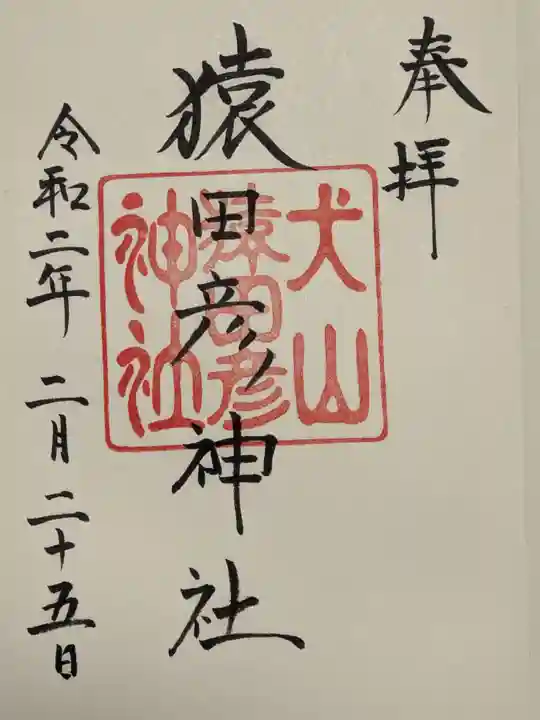 奉拝
犬山
猿田彦
神社
猿田彦神社
令和二年 二月二十五日